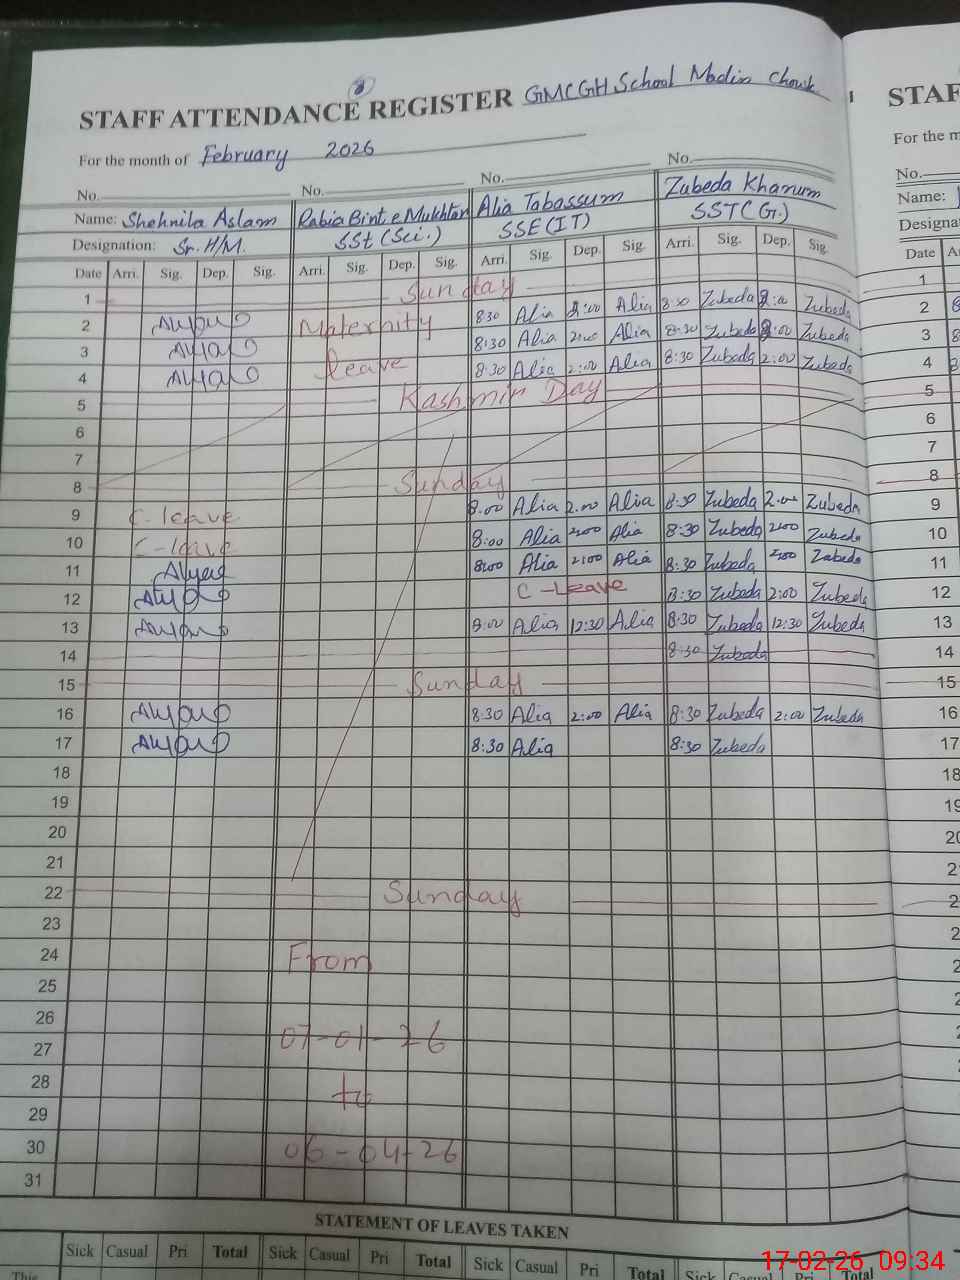 8
STAFF ATTENDANCE REGISTER GMCGH School Madin Chowk
For the month of February 2026
No. No. No. No.
Name: Shehnila Aslam Rabia Bint e Mukhtar Alia Tabassum Zubeda Khanum
Designation: Sr. H/M. SSt (Sci.) SSE (IT) SST (G.)
Date Arri. Sig. Dep. Sig. Arri. Sig. Dep. Sig. Arri. Sig. Dep. Sig. Arri. Sig. Dep. Sig.
1 Sunday
2 Maternity 8:30 Alia 2:00 Alia 8:30 Zubeda 2:00 Zubeda
3 8:30 Alia 2:00 Alia 8:30 Zubeda 2:00 Zubeda
4 leave 8:30 Alia 2:00 Alia 8:30 Zubeda 2:00 Zubeda
5 Kashmir Day
6
7
8 Sunday
9 C-leave 8:00 Alia 2:00 Alia 8:30 Zubeda 2:00 Zubeda
10 C-leave 8:00 Alia 2:00 Alia 8:30 Zubeda 2:00 Zubeda
11 8:00 Alia 2:00 Alia 8:30 Zubeda 2:00 Zubeda
12 C-Leave 8:30 Zubeda 2:00 Zubeda
13 8:00 Alia 12:30 Alia 8:30 Zubeda 12:30 Zubeda
14 8:30 Zubeda
15 Sunday
16 8:30 Alia 2:00 Alia 8:30 Zubeda 2:00 Zubeda
17 8:30 Alia 8:30 Zubeda
18
19
20
21
22 Sunday
23
24 From
25
26
27 07-01-26
28
29 to
30 06-04-26
31
STATEMENT OF LEAVES TAKEN
Sick Casual Pri Total Sick Casual Pri Total Sick Casual Pri Total Sick Casual Pri Total
This
17-02-26 09:34
STAF
For the m
No.
Name:
Designa
Date
1
2
3
4
5
6
7
8
9
10
11
12
13
14
15
16
17
18